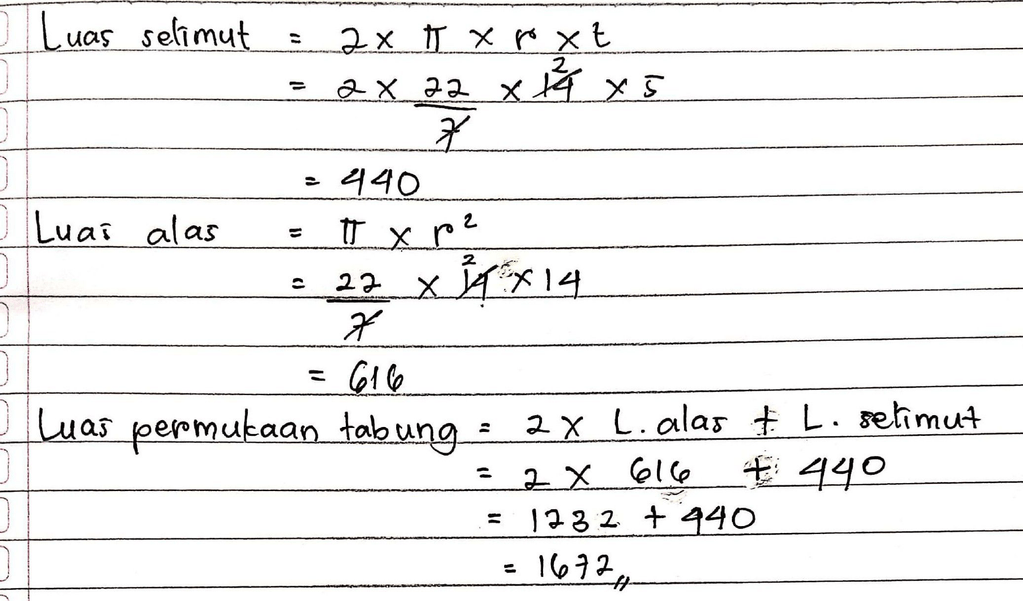 Luas selimut = 2 x π x r x t
= 2 x 22/7 x 14 2 x 5
= 440
Luas alas = π x r²
= 22/7 x 14 2 x 14
= 616
Luas permukaan tabung = 2 x L. alas + L. selimut
= 2 x 616 + 440
= 1232 + 440
= 1672,,